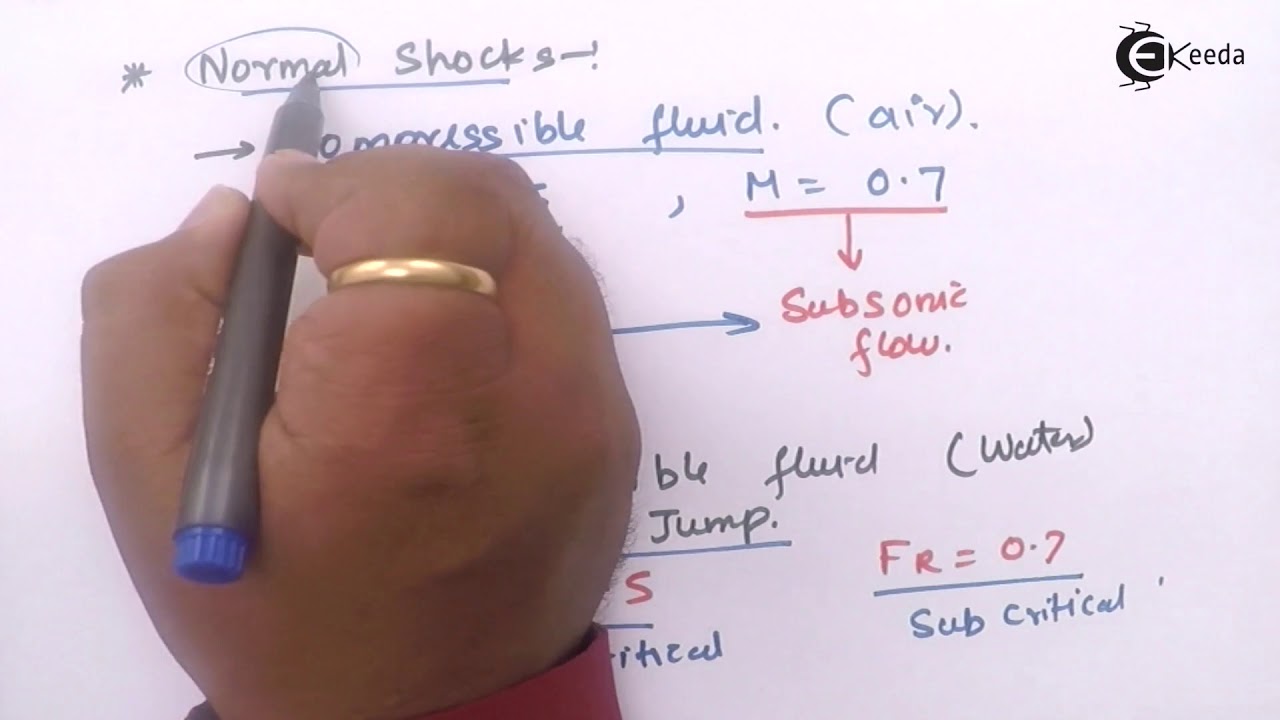 Keeda
* Normal Shocks -:
→ ompressible fluid. (air).
, M = 0.7
Subsonic
flow.
ible fluid (Water)
Jump.
FR = 0.7
S
Sub critical
itical